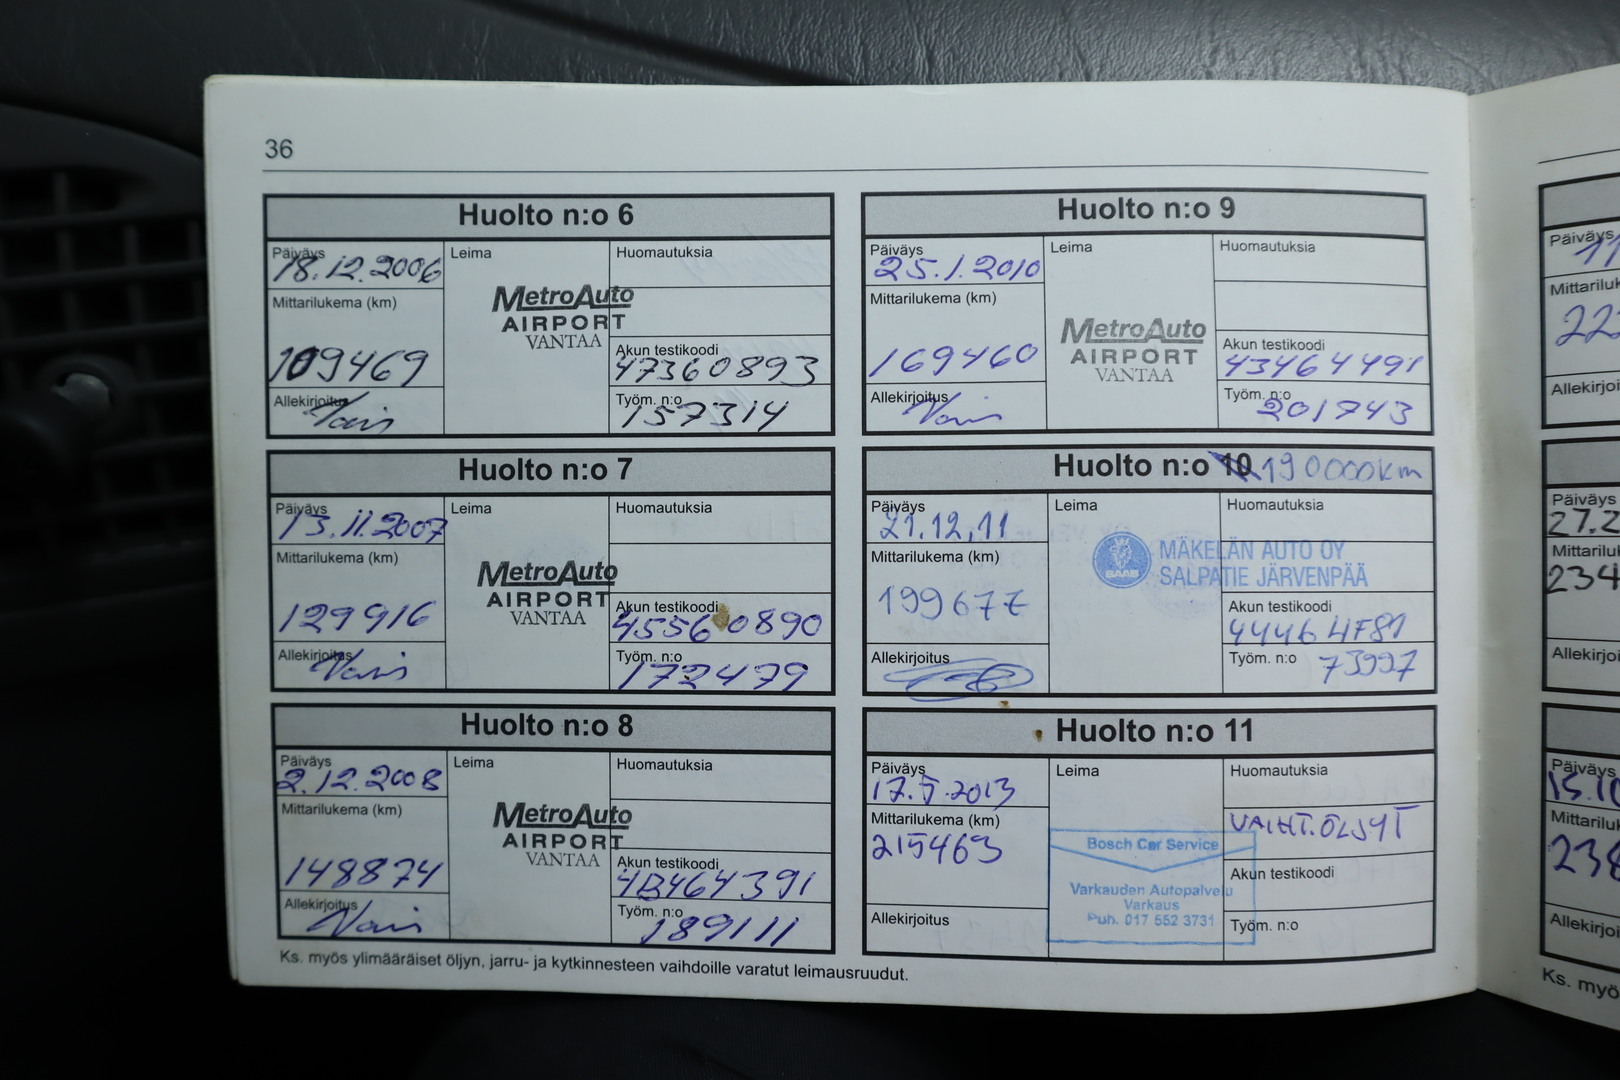 36
Huolto n:o 6
Päiväys
18.12.2006
Mittarilukema (km)
109469
Allekirjoitus
Leima
MetroAuto
AIRPORT
VANTAA
Huomautuksia
Akun testikoodi
47360893
Työm. n:o
157314
Huolto n:o 7
Päiväys
13.11.2007
Mittarilukema (km)
129916
Allekirjoitus
Leima
MetroAuto
AIRPORT
VANTAA
Huomautuksia
Akun testikoodi
45560890
Työm. n:o
172479
Huolto n:o 8
Päiväys
2.12.2008
Mittarilukema (km)
148874
Allekirjoitus
Leima
MetroAuto
AIRPORT
VANTAA
Huomautuksia
Akun testikoodi
4B464391
Työm. n:o
189111
Ks. myös ylimääräiset öljyn, jarru- ja kytkinnesteen vaihdoille varatut leimausruudut.
Huolto n:o 9
Päiväys
25.1.2010
Mittarilukema (km)
169460
Allekirjoitus
Leima
MetroAuto
AIRPORT
VANTAA
Huomautuksia
Akun testikoodi
43464491
Työm. n:o
201743
Huolto n:o 10 190000km
Päiväys
21.12.11
Mittarilukema (km)
Allekirjoitus
Leima
SAAB
MÄKELÄN AUTO OY
SALPATIE JÄRVENPÄÄ
Huomautuksia
Akun testikoodi
44464F81
Työm. n:o
73997
Huolto n:o 11
Päiväys
17.5.2013
Mittarilukema (km)
215463
Allekirjoitus
Leima
Bosch Car Service
Varkauden Autopalvelu
Varkaus
Puh. 017 552 3731
Huomautuksia
VAIHT.ÖLJYT
Akun testikoodi
Työm. n:o
Päiväys
11
Mittariluk
222
Allekirjoi
Päiväys
27.2
Mittarilu
234
Allekirjoi
Päiväys
15.10
Mittariluk
238
Allekirjoi
Ks. myö